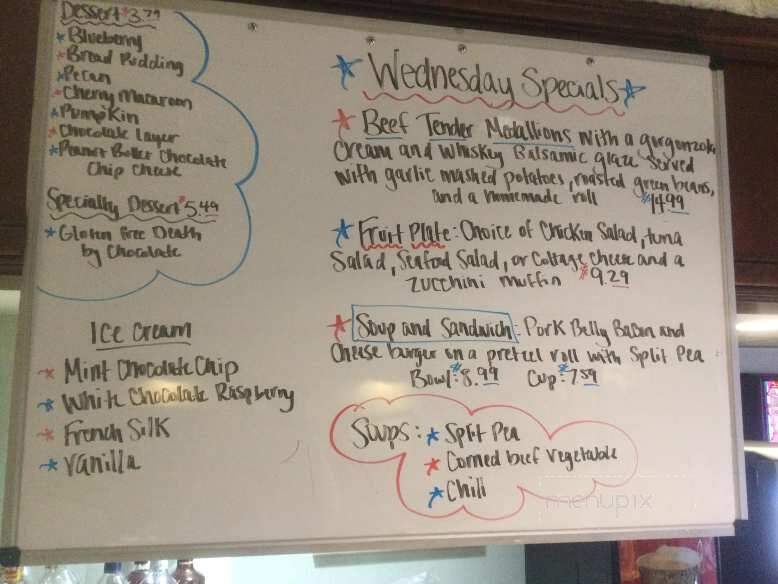 Dessert $3.79
* Blueberry
* Bread Pudding
* Pecan
* Cherry Macaroon
* Pumpkin
* Chocolate Layer
* Peanut Butter Chocolate
Chip Cheese
Specialty Dessert $5.49
* Gluten Free Death
by Chocolate
Ice Cream
* Mint Chocolate Chip
* White Chocolate Raspberry
* French Silk
* Vanilla
* Wednesday Specials *
* Beef Tender Medallions with a gorgonzola
Cream and Whiskey Balsamic glaze served
with garlic mashed potatoes, roasted green beans,
and a homemade roll $14.99
* Fruit Plate: Choice of Chicken Salad, tuna
Salad, Seafood Salad, or Cottage cheese and a
zucchini muffin $9.29
* Soup and Sandwich: Pork Belly Bacon and
Cheese burger on a pretzel roll with Split Pea
Bowl: $8.99 Cup: $7.59
Soups: * Split Pea
* Corned beef Vegetable
* Chili
menupix